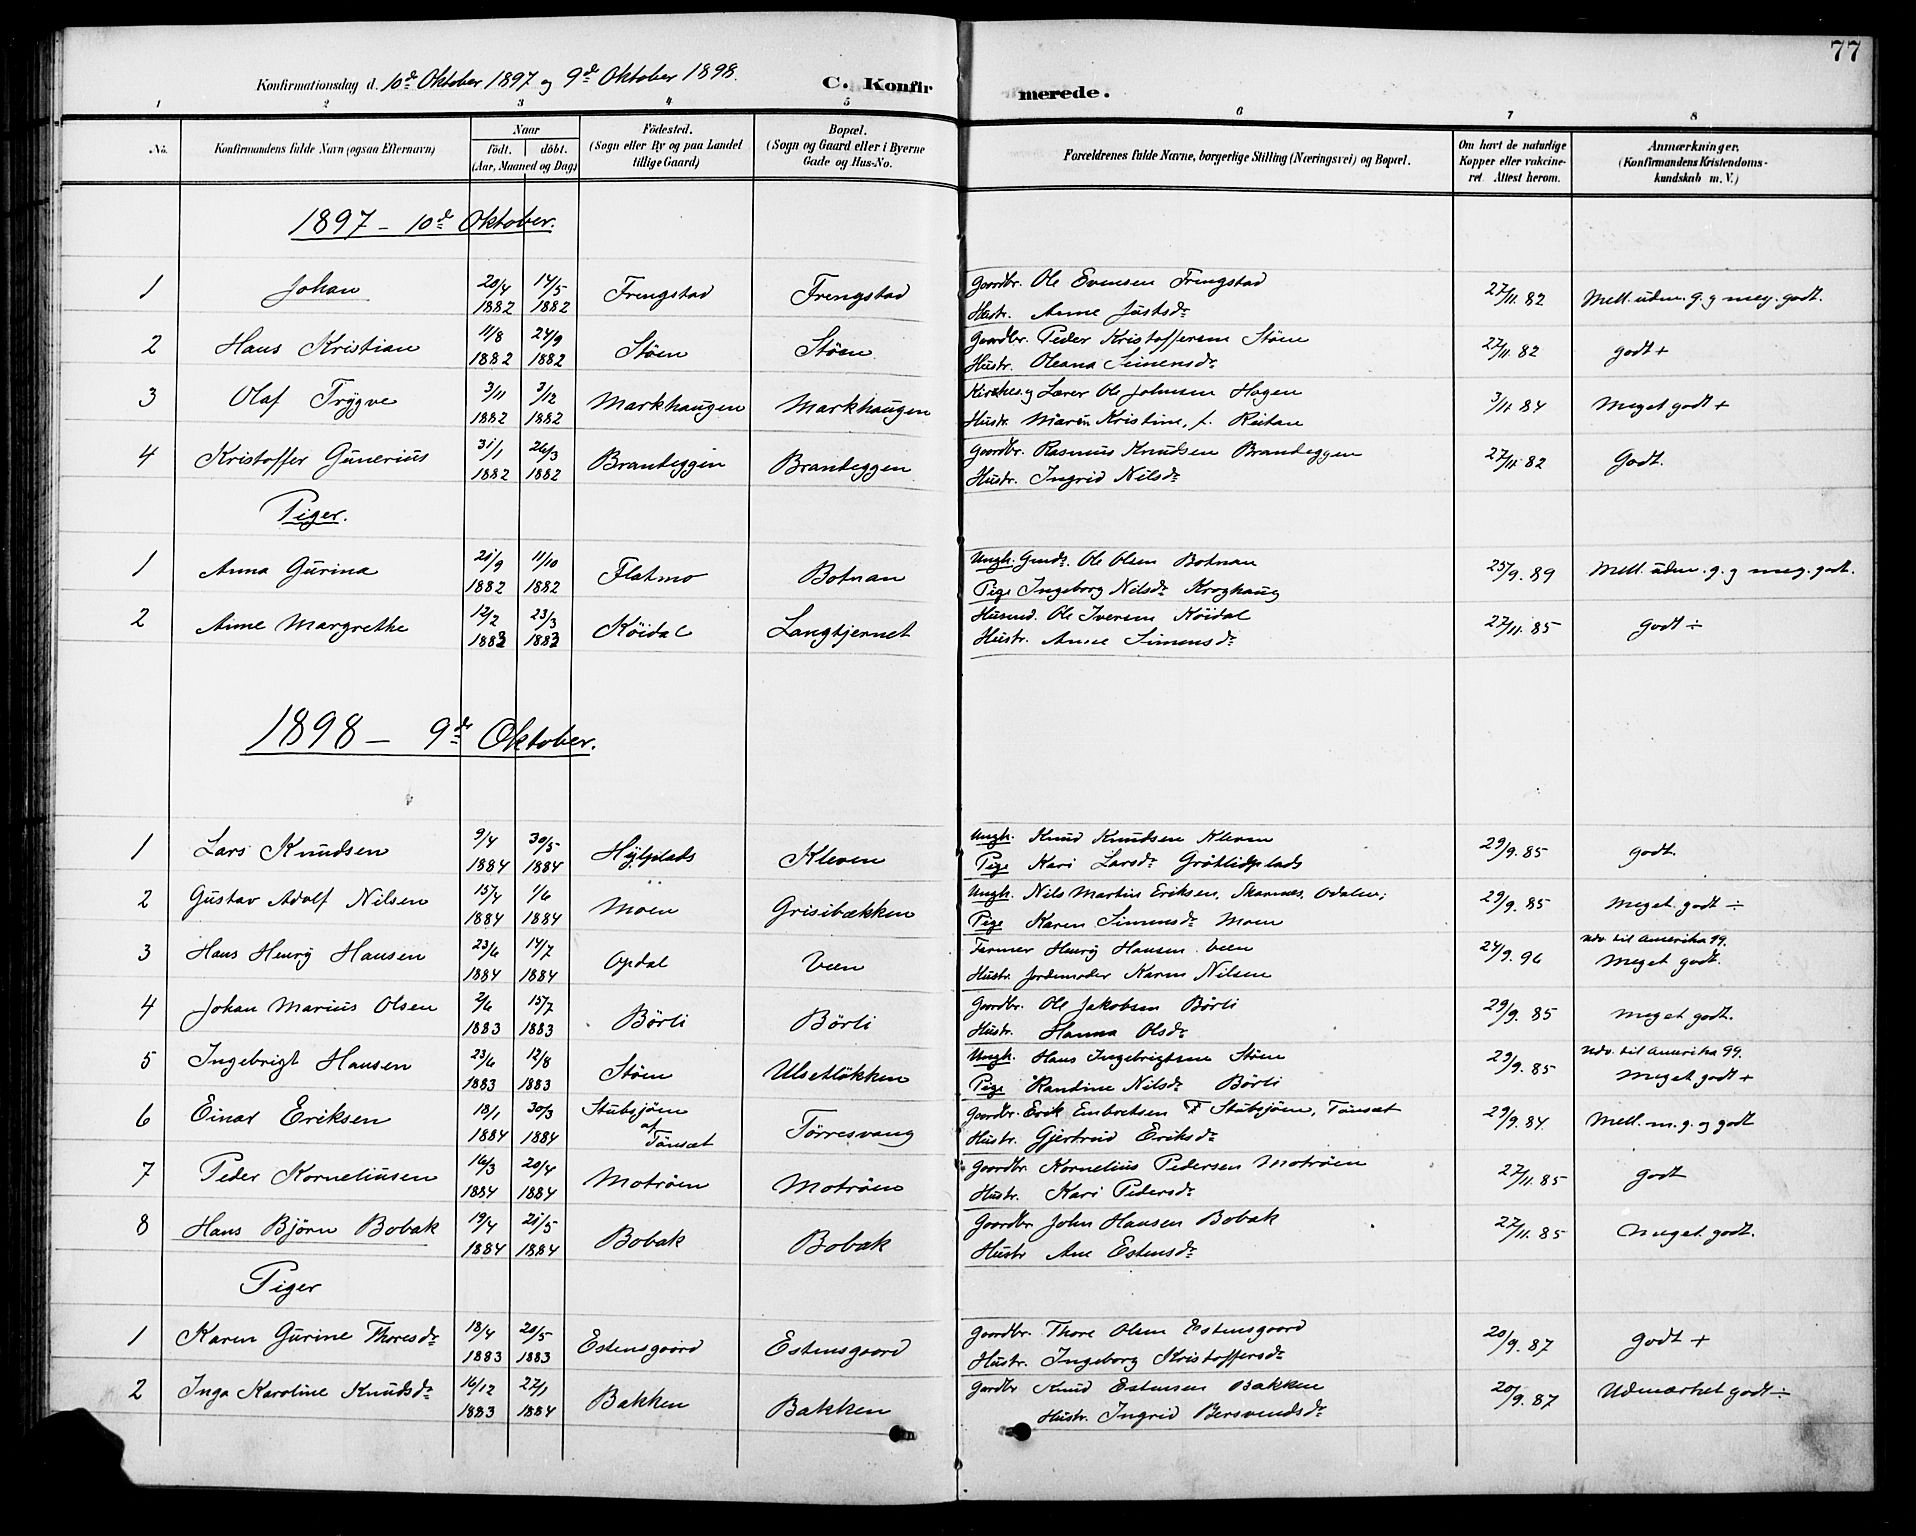 77
Konfirmationsdag d. 10de Oktober 1897 og 9de Oktober 1898. C. Konfirmerede.
1 2 3 4 5 6 7 8
No. Konfirmandens fulde Navn (ogsaa Efternavn) Naar født. døbt. (Aar, Maaned og Dag) Fødested. (Sogn eller By og paa Landet tillige Gaard) Bopæl. (Sogn og Gaard eller i Byerne Gade og Hus-No. Forældrenes fulde Navne, borgerlige Stilling (Næringsvei) og Bopæl. Om havt de naturlige Kopper eller vakcineret Attest herom. Anmærkninger. (Konfirmandens Kristendomskundskab m. V.)
1897 - 10de Oktober.
1 Johan 20/4 1882 14/5 1882 Frengstad Frengstad Gaardbr. Ole Evensen Frengstad 27/11.82 Mell. udm. g. og meg. godt.
Hustr. Anne Justsdr
2 Hans Kristian 11/8 1882 24/9 1882 Støen Støen. Gaardbr. Peder Kristoffersen Støen 27/11.82 godt +
Hustr. Oleana Simensdr
3 Olaf Trygve 3/11 1882 3/12 1882 Markhaugen Markhaugen Kirkes. og Lærer Ole Johnsen Hagen 3/11.84 Meget godt +
Hustr. Maren Kristine, f. Reitan
4 Kristoffer Gunerius 31/1 1882 26/3 1882 Brandeggen Brandeggen Gaardbr. Rasmus Knudsen Brandeggen 27/11.82 Godt.
Hustr. Ingrid Nilsdr
Piger.
1 Anna Gurina 21/9 1882 11/10 1882 Flatmo Botnan Ungk. Gmds. Ole Olsen Botnan 23/9.89 Mell. udm. g. og meg. godt.
Pige Ingeborg Nilsdr Kroghaug
2 Anne Margrethe 12/2 1883 23/3 1883 Køidal Langtjernet Husmd. Ole Iversen Køidal 27/11.85 Godt ÷
Hustr. Anne Simensdr
1898 - 9de Oktober.
1 Lars Knudsen 9/4 1884 30/5 1884 Kleven Ungk. Knud Knudsen Kleven 29/9.85 godt.
Pige Kari Larsdr
2 Gustav Adolf Nilsen 15/4 1884 1/6 1884 Moen Grisibækken Ungk. Nils Martin Eriksen, Skarnæs, Odalen; 29/9.85 Meget godt ÷
Pige Karen Simensdr Moen
3 Hans Henry Hansen 23/6 1884 14/7 1884 Opdal Veen Farmer Henry Hansen Veen 24/9.96 udv. til Amerika 99.
Hustr. Jordemoder Karen Nilsen Meget godt.
4 Johan Marius Olsen 2/6 1883 15/7 1883 Børli Børli Gaardbr. Ole Jakobsen Børli 29/9.85 Meget godt.
Hustr. Hanna Olsdr
5 Ingebrigt Hansen 23/6 1883 12/8 1883 Støen Ulsetløkken Ungk. Hans Ingebrigtsen Støen 29/9.85 udv. til Amerika 99.
Pige Randine Nilsdr Børli Meget godt +
6 Einar Eriksen 18/1 1884 30/3 1884 Stubsjøen af Tønset Tørresvang Gaardbr. Erik Embretsen Stubsjøen, Tønset 29/9.84 Mell. m. g. og godt
Hustr. Gjertrud Eriksdr
7 Peder Korneliusen 16/3 1884 20/4 1884 Motrøen Motrøen Gaardbr. Kornelius Pedersen Motrøen 27/11.85 godt
Hustr. Kari Pedersdr
8 Hans Bjørn Bobak 19/4 1884 21/5 1884 Bobak Bobak Gaardbr John Hansen Bobak 27/11.85 Meget godt.
Hustr Ane Estensdr
Piger
1 Karen Gurine Thoresdr 18/4 1883 20/5 1883 Estensgaard Estensgaard Gaardbr. Thore Olsen Estensgaard 20/9.87 godt +
Hustr. Ingeborg Kristoffersdr
2 Inga Karoline Knudsdr 16/12 1883 27/1 1884 Bakken Bakken Gardbr Knud Estensen Bakken 20/9.87 Udmærket godt ÷
Hustr. Ingrid Bersvendsdr